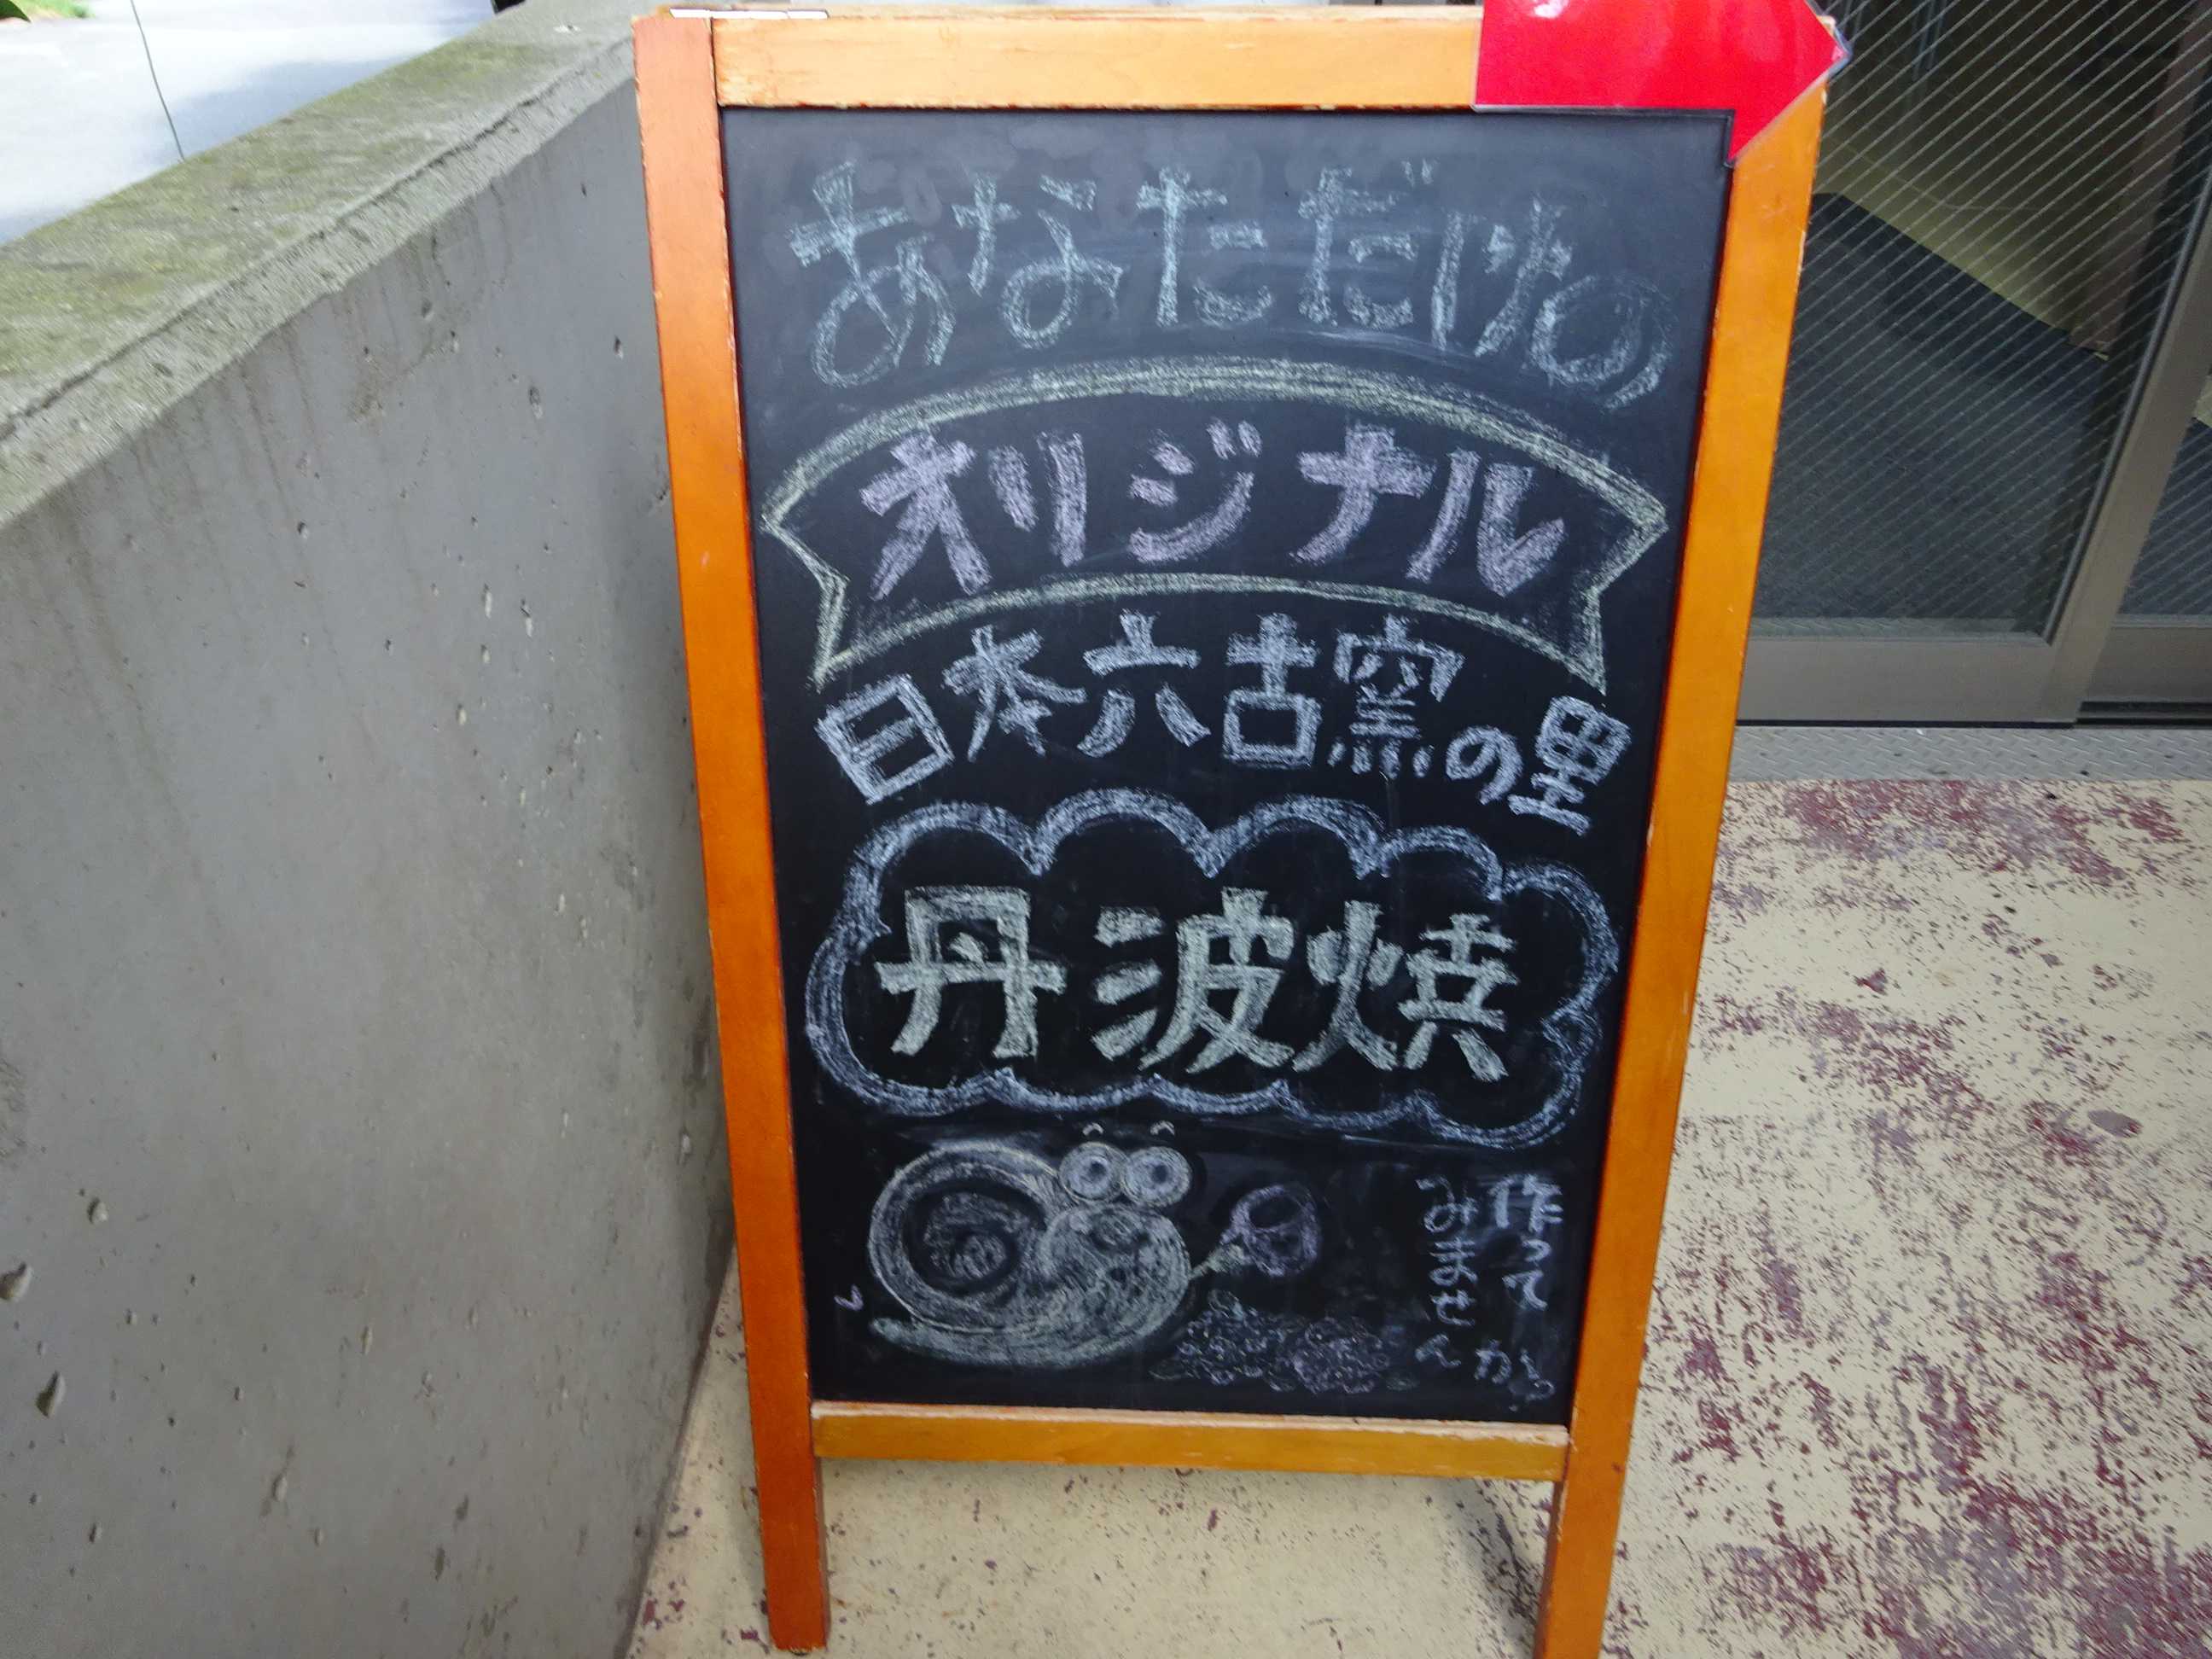 あなただけの
オリジナル
日本六古窯の里
丹波焼
作って
みませんか。